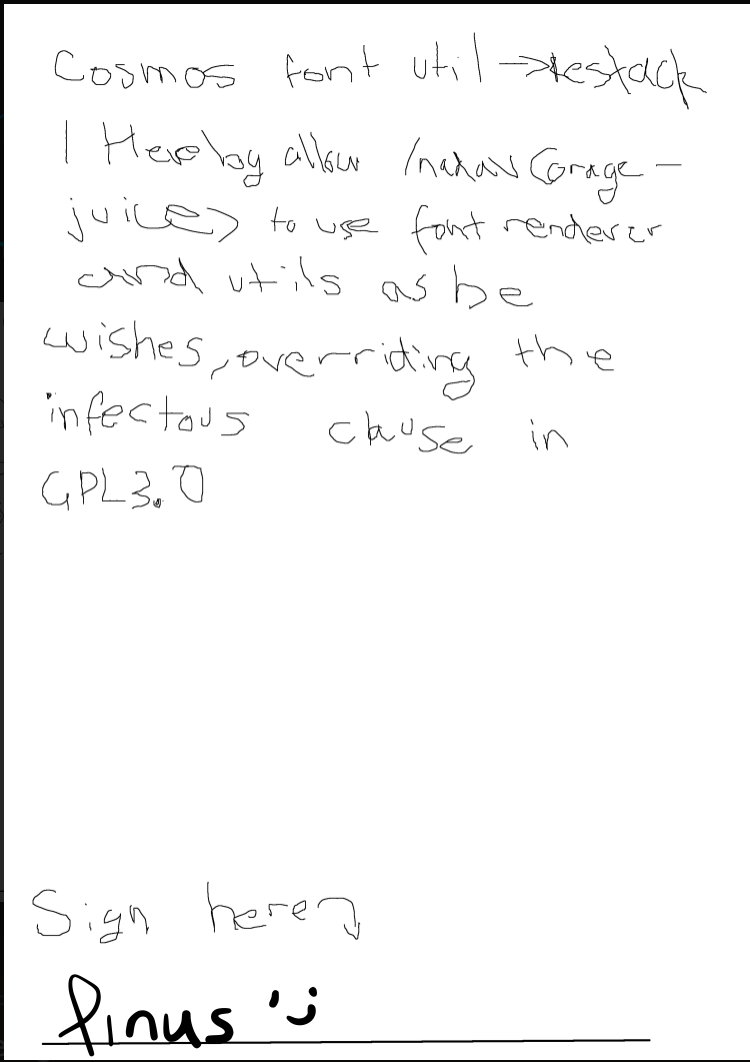 Cosmos font util →testack
I Hereby allow /nahav (orage-
juice) to use font renderer
and utils as he
wishes, overriding the
infectous clause in
GPL3.0
Sign here
finus